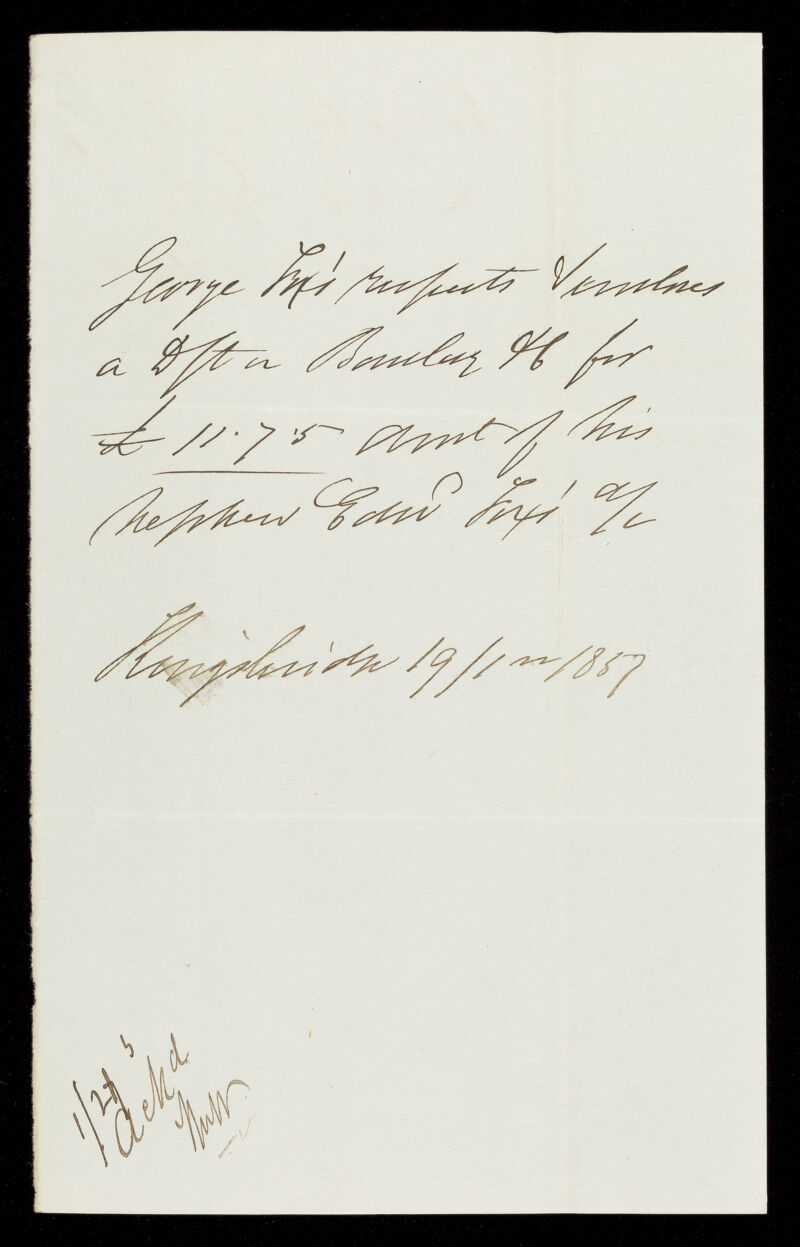 George Fox's respects & encloses
a Dft on Barclay &C for
£ 11.7.5 Amt of his
nephew Edwd Fox's a/c
Kingsbridge 19/1 m/1857
Ackd